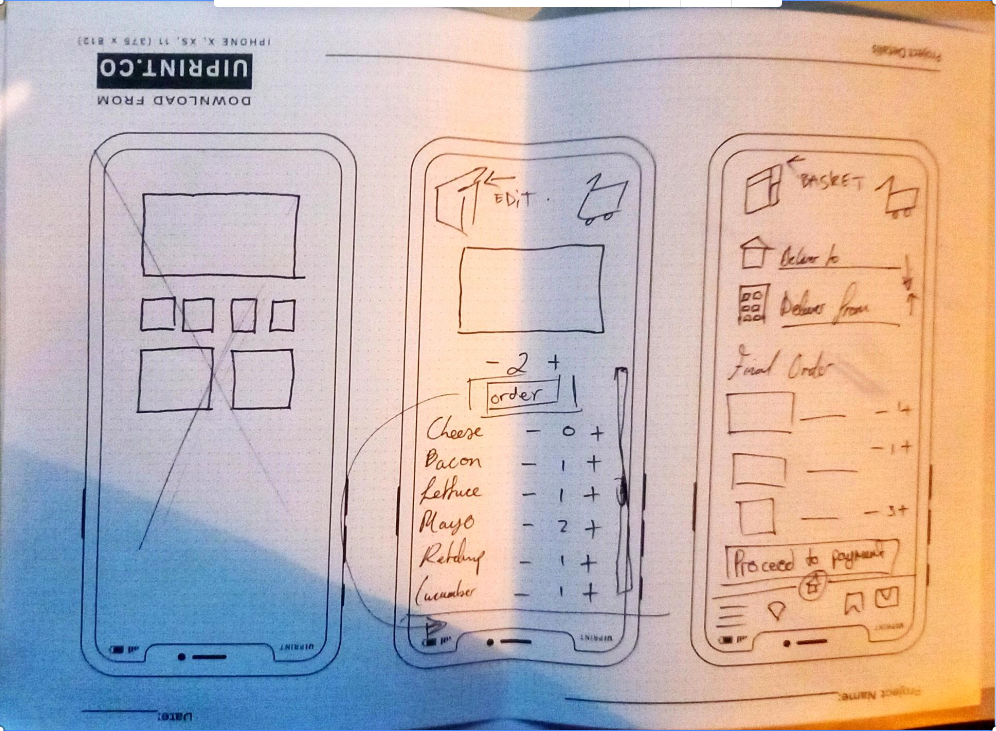 IPHONE X, XS, 11 (375 x 812)
UIPRINT.CO
DOWNLOAD FROM
Project Details
EDIT.
- 2 +
order
Cheese - 0 +
Bacon - 1 +
Lettuce - 1 +
Mayo - 2 +
Ketchup - 1 +
Cucumber - 1 +
UIPRINT
BASKET
Deliver to
Deliver from
Final Order
- 4
- 1 +
- 3 +
Proceed to payment
UIPRINT
UIPRINT
Project Name:
Date: